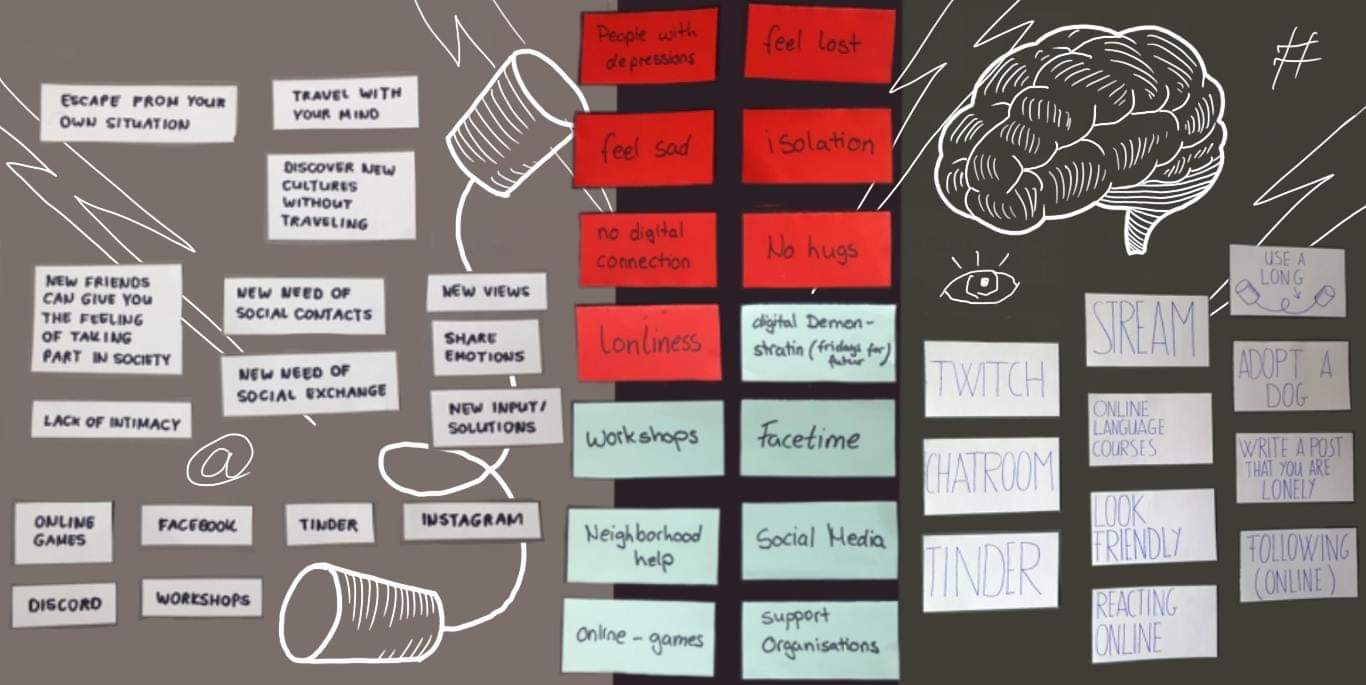 ESCAPE FROM YOUR
OWN SITUATION
TRAVEL WITH
YOUR MIND
DISCOVER NEW
CULTURES
WITHOUT
TRAVELING
NEW FRIENDS
CAN GIVE YOU
THE FEELING
OF TAKING
PART IN SOCIETY
NEW NEED OF
SOCIAL CONTACTS
NEW VIEWS
SHARE
EMOTIONS
NEW NEED OF
SOCIAL EXCHANGE
NEW INPUT/
SOLUTIONS
LACK OF INTIMACY
@
ONLINE
GAMES
FACEBOOK
TINDER
INSTAGRAM
DISCORD
WORKSHOPS
People with
depressions
feel lost
feel sad
isolation
no digital
connection
No hugs
Lonliness
digital Demon-
stratin (fridays for)
futur
Workshops
Facetime
Neighborhood
help
Social Media
Online-games
support
Organisations
#
TWITCH
CHATROOM
TINDER
STREAM
ONLINE
LANGUAGE
COURSES
LOOK
FRIENDLY
REACTING
ONLINE
USE A
LONG
ADOPT A
DOG
WRITE A POST
THAT YOU ARE
LONELY
FOLLOWING
(ONLINE)